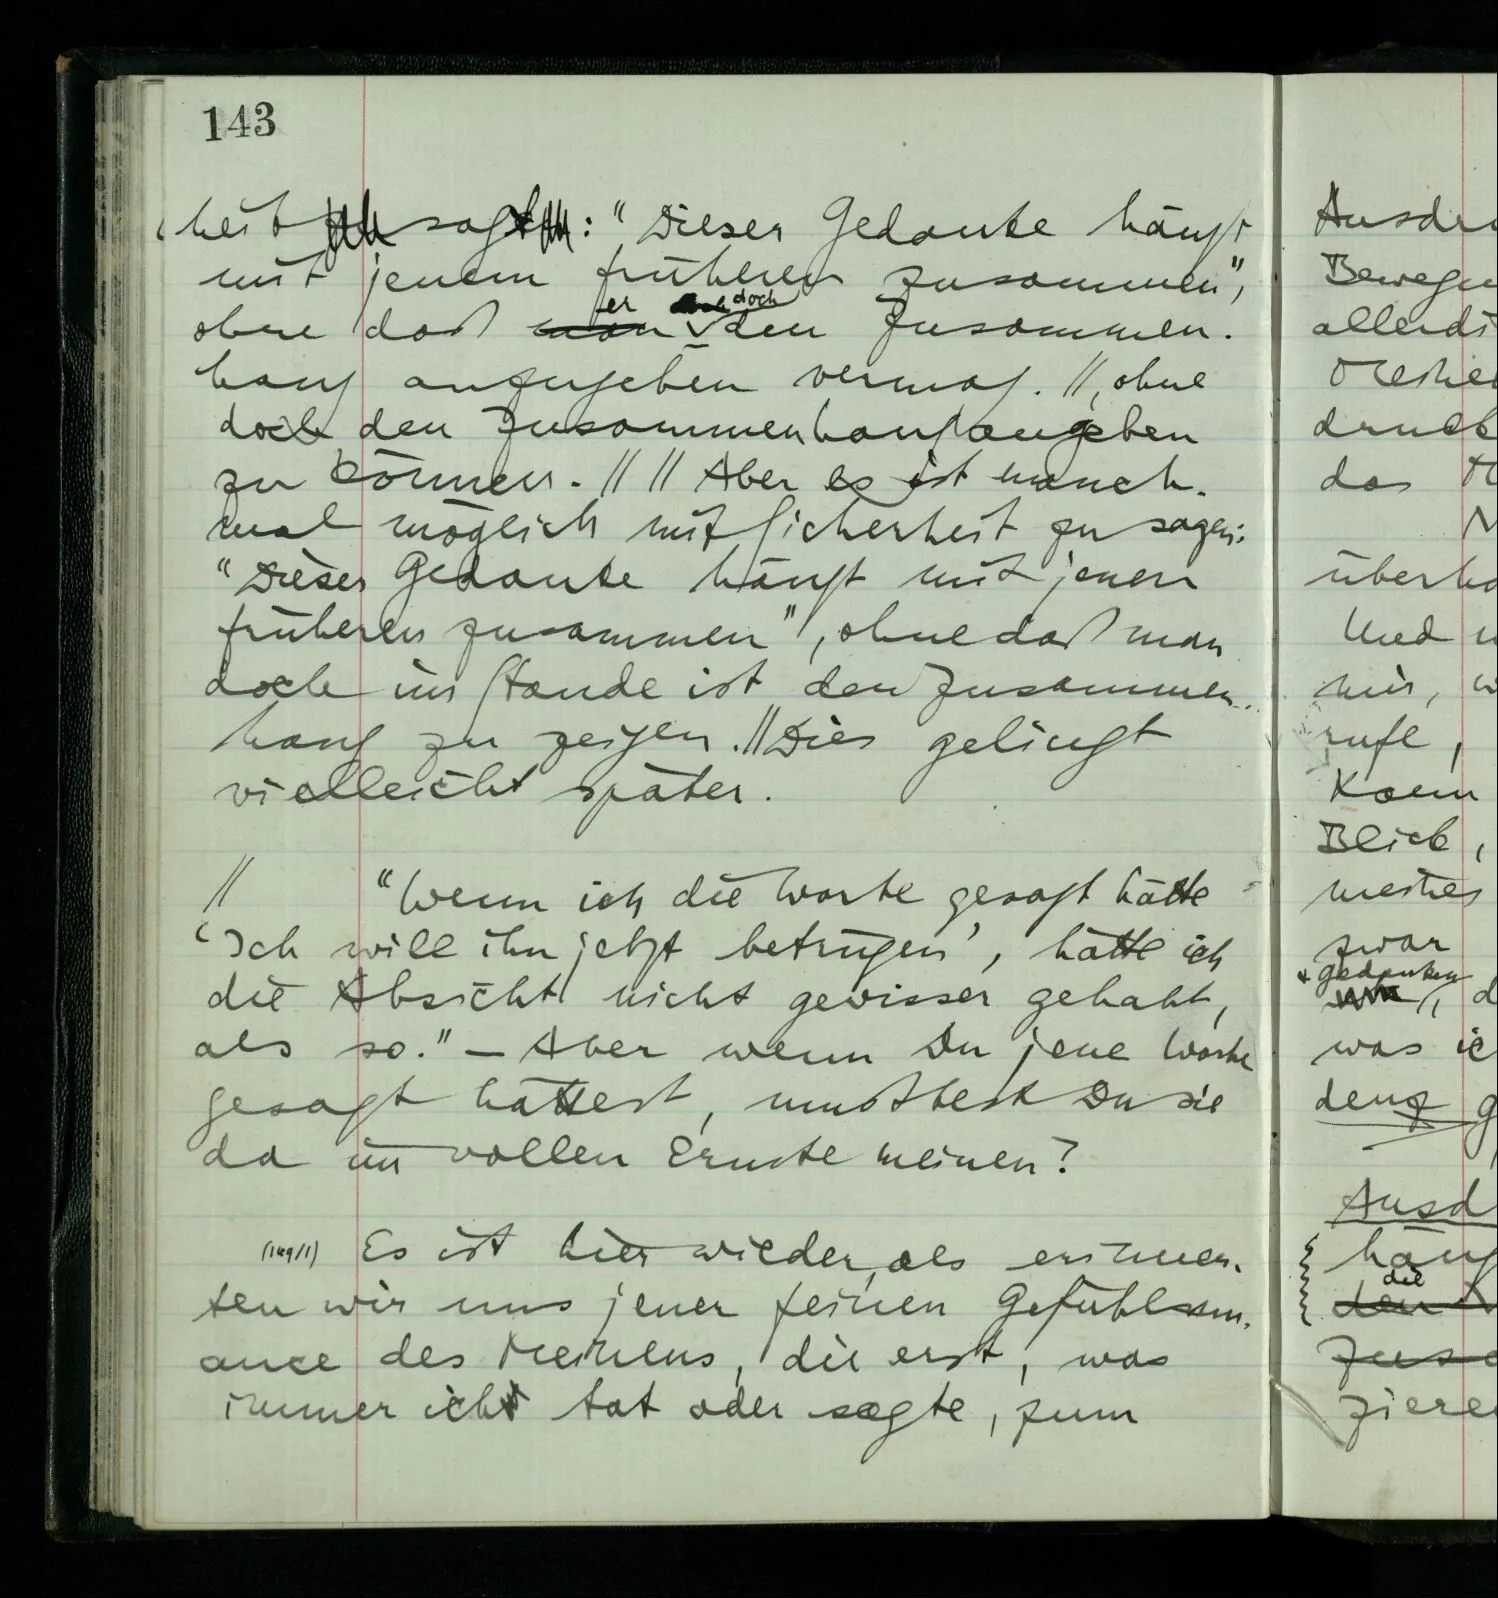 143
heit sagt: "Dieser Gedanke hängt
mit jenem früheren zusammen",
er doch
ohne daß man den Zusammen-
hang anzugeben vermag. // , ohne
doch den Zusammenhang angeben
zu können. // // Aber es ist manch-
mal möglich mit Sicherheit zu sagen:
"Dieser Gedanke hängt mit jenem
früheren zusammen", ohne daß man
doch im Stande ist den Zusammen-
hang zu zeigen. // Dies gelingt
vielleicht später.
// "Wenn ich die Worte gesagt hätte
'Ich will ihn jetzt betrügen', hätte ich
die Absicht nicht gewisser gehabt,
als so." – Aber wenn Du jene Worte
gesagt hättest, mußtest Du sie
da im vollen Ernste meinen?
Es ist hier wieder, als erinner-
ten wir uns jener feinen Gefühlsnu-
ance des Meinens, die erst, was
immer ich tat oder sagte, zum
Bewegu
allerdi
druck
das
überha
Und
mir, w
rufe,
Kann
Blick,
meines
zwar
gedanken
was ic
Ausd
häng
die
den
ziere